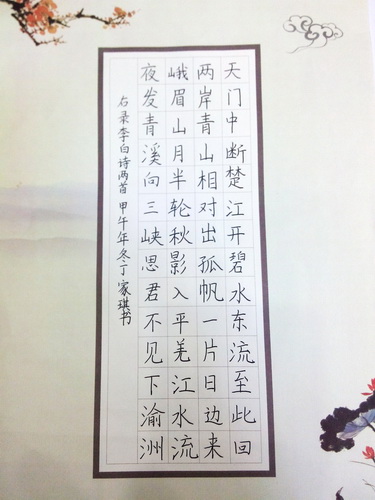 天门中断楚江开碧水东流至此回
两岸青山相对出孤帆一片日边来
峨眉山月半轮秋影入平羌江水流
夜发青溪向三峡思君不见下渝洲
右录李白诗两首甲午年冬丁家琪书